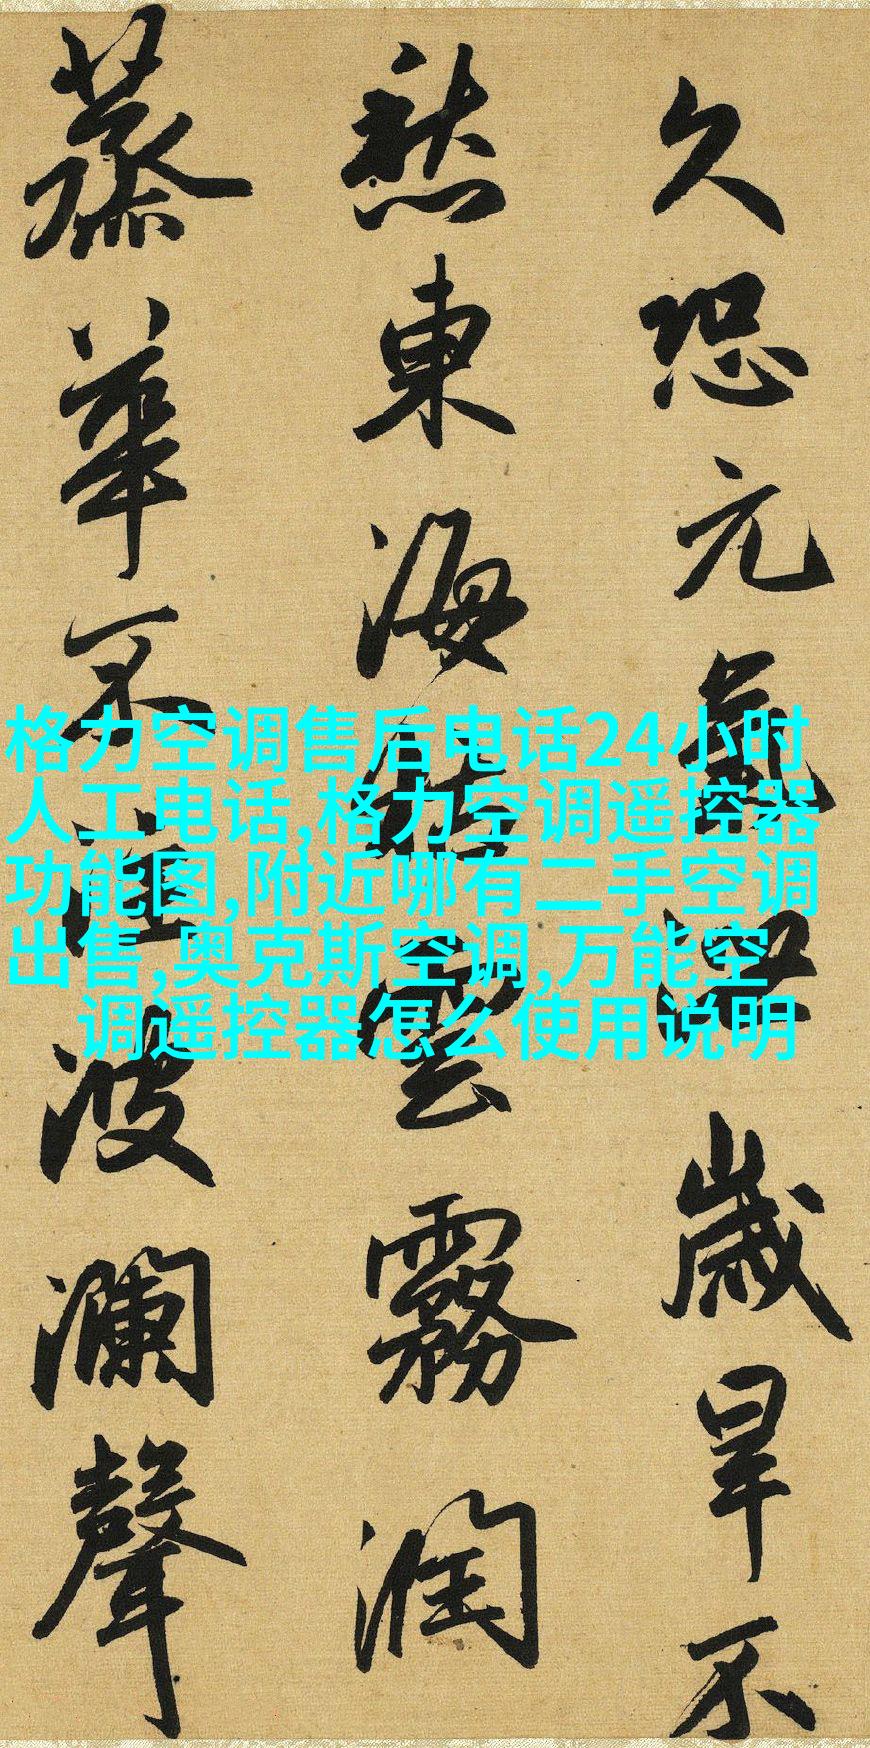 久恐元氣泄歲旱不
愁東海枯雲霧潤
蒸華不注波瀾聲
格力空调售后电话24小时
人工电话,格力空调遥控器
功能图,附近哪有二手空调
出售,奥克斯空调,万能空
调遥控器怎么使用说明